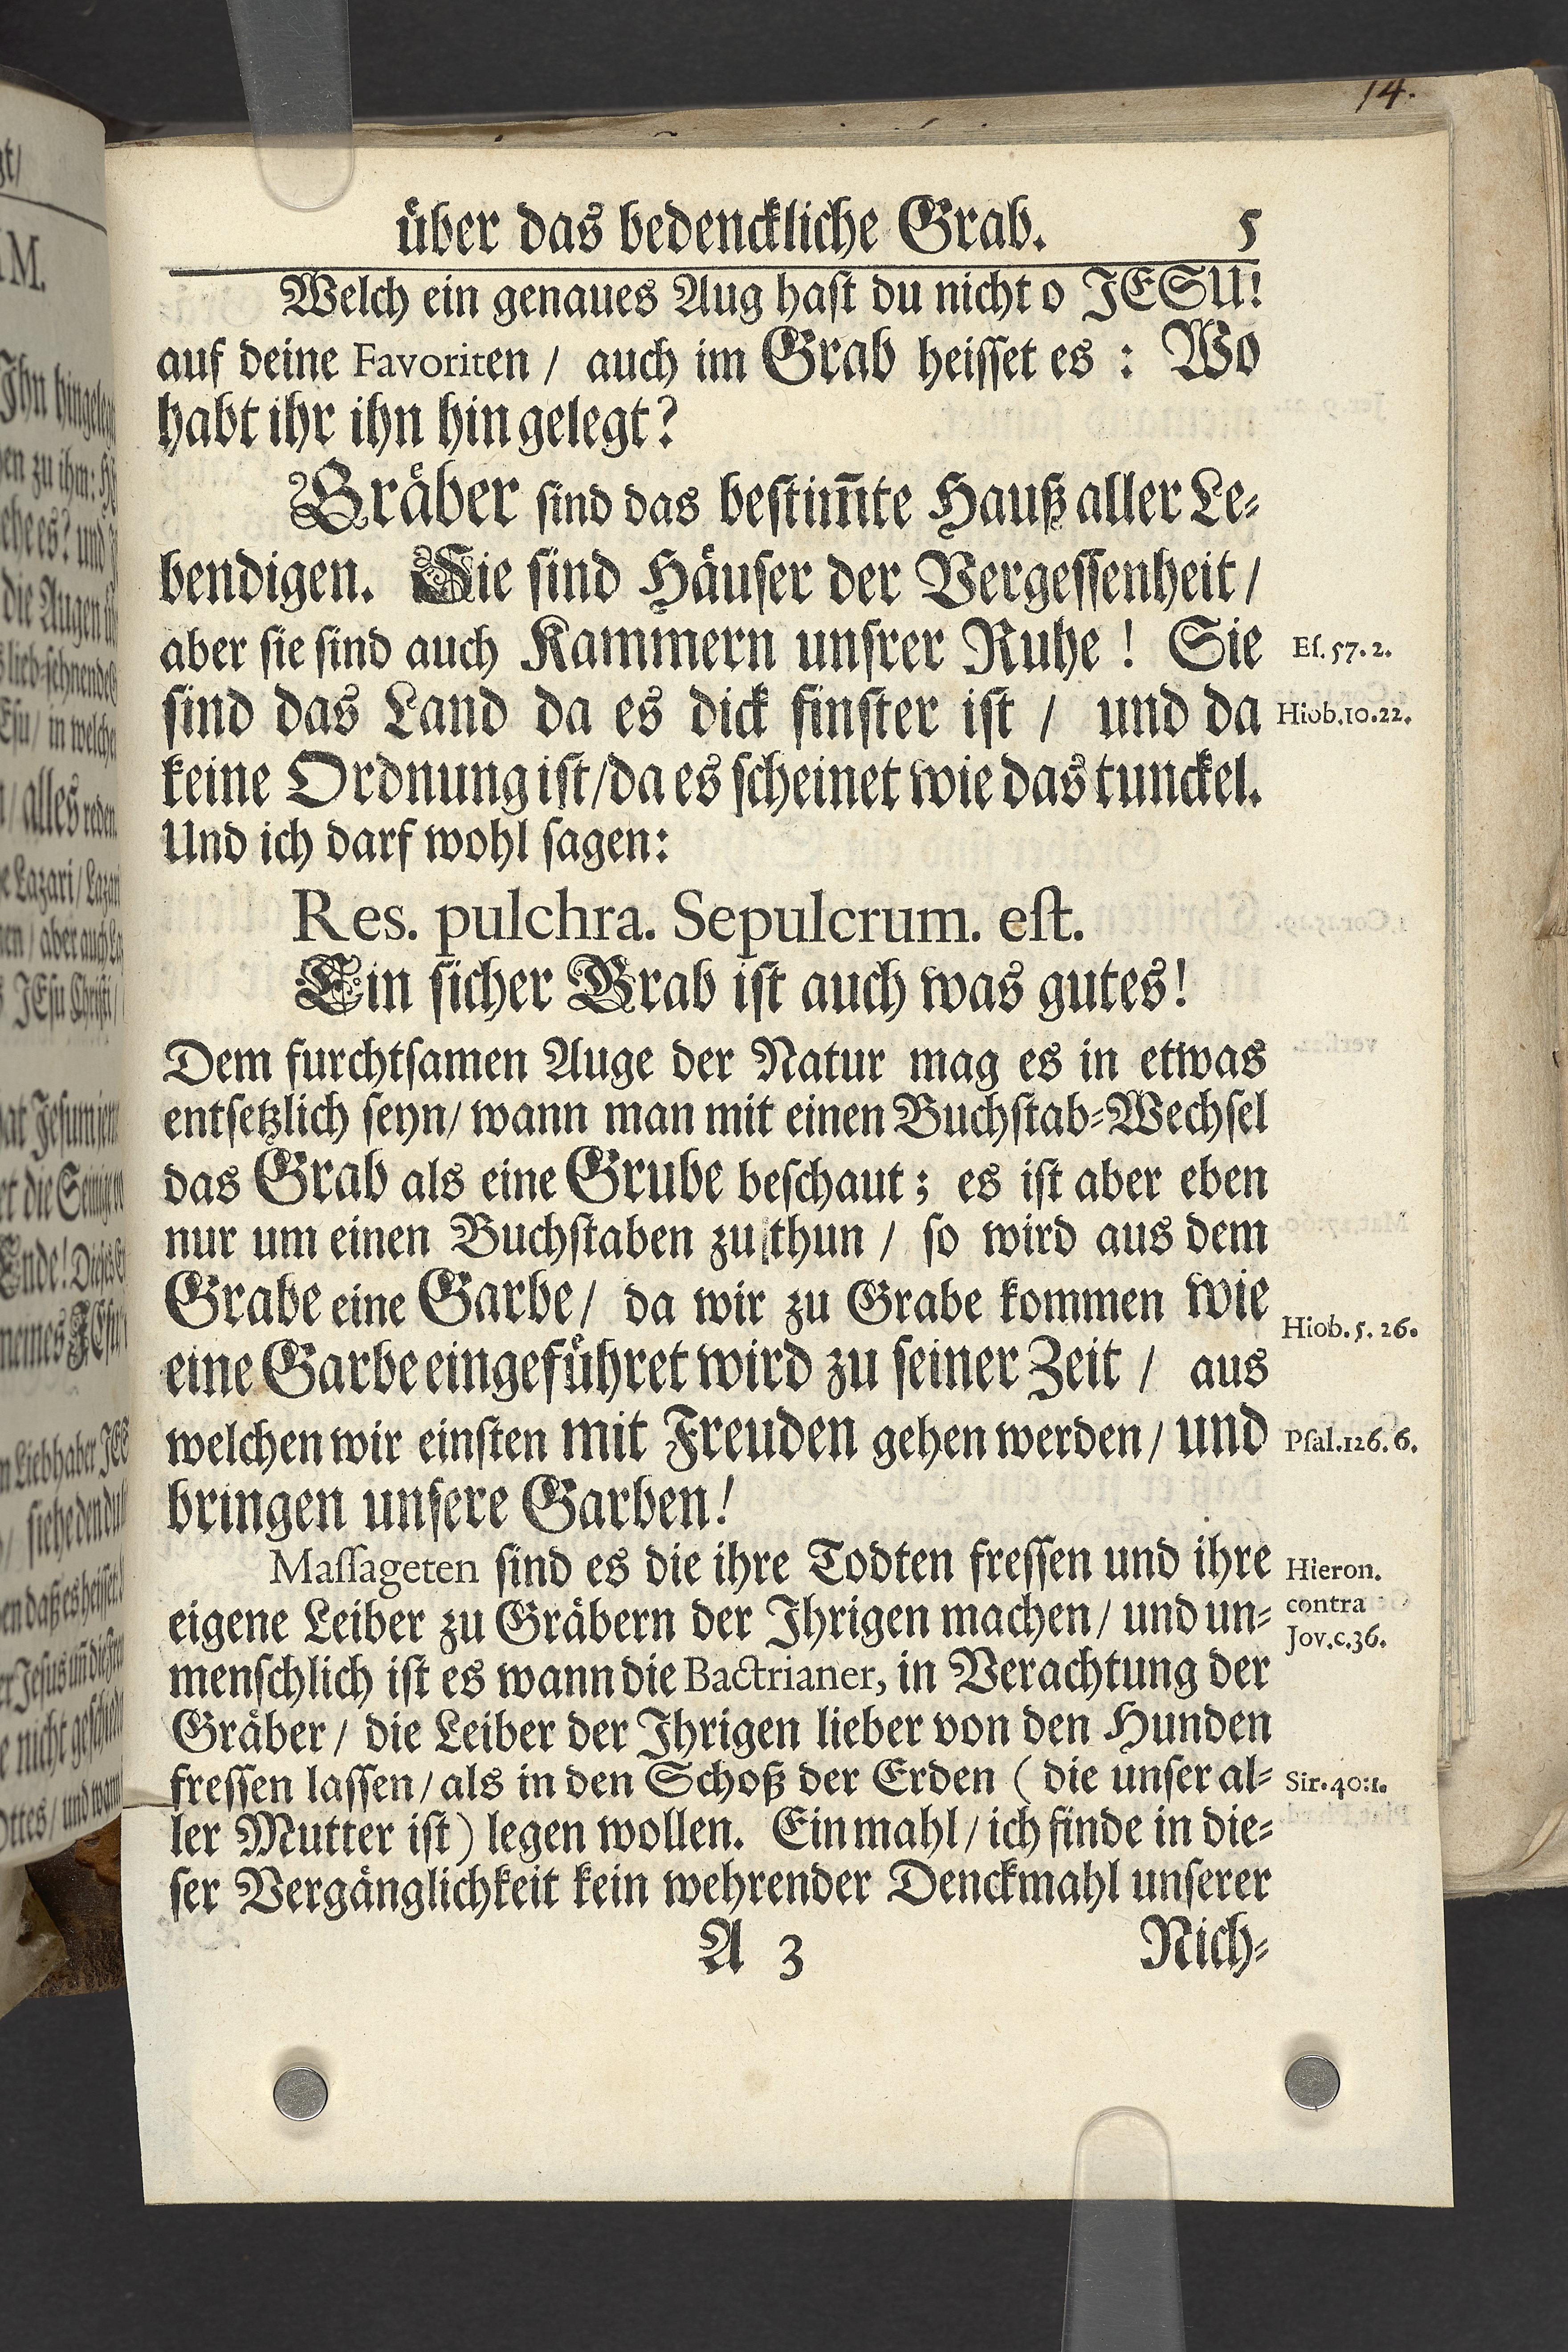 14.
über das bedenckliche Grab. 5
Welch ein genaues Aug hast du nicht o JESU!
auf deine Favoriten / auch im Grab heisset es : Wo
habt ihr ihn hin gelegt?
Gräber sind das bestim̄te Hauß aller Le-
bendigen. Sie sind Häuser der Vergessenheit /
aber sie sind auch Kammern unsrer Ruhe ! Sie
Es. 57. 2.
sind das Land da es dick finster ist / und da
Hiob. 10. 22.
keine Ordnung ist / da es scheinet wie das tunckel.
Und ich darf wohl sagen:
Res. pulchra. Sepulcrum. est.
Ein sicher Grab ist auch was gutes!
Dem furchtsamen Auge der Natur mag es in etwas
entsetzlich seyn / wann man mit einen Buchstab-Wechsel
das Grab als eine Grube beschaut ; es ist aber eben
nur um einen Buchstaben zu thun / so wird aus dem
Grabe eine Garbe / da wir zu Grabe kommen wie
Hiob. 5. 26.
eine Garbe eingeführet wird zu seiner Zeit / aus
welchen wir einsten mit Freuden gehen werden / und
Psal. 126. 6.
bringen unsere Garben!
Massageten sind es die ihre Todten fressen und ihre
Hieron.
eigene Leiber zu Gräbern der Ihrigen machen / und un-
contra
Jov. c. 36.
menschlich ist es wann die Bactrianer, in Verachtung der
Gräber / die Leiber der Ihrigen lieber von den Hunden
fressen lassen / als in den Schoß der Erden ( die unser al-
Sir. 40: 1.
ler Mutter ist ) legen wollen. Einmahl / ich finde in die-
ser Vergänglichkeit kein wehrender Denckmahl unserer
A 3 Nich-